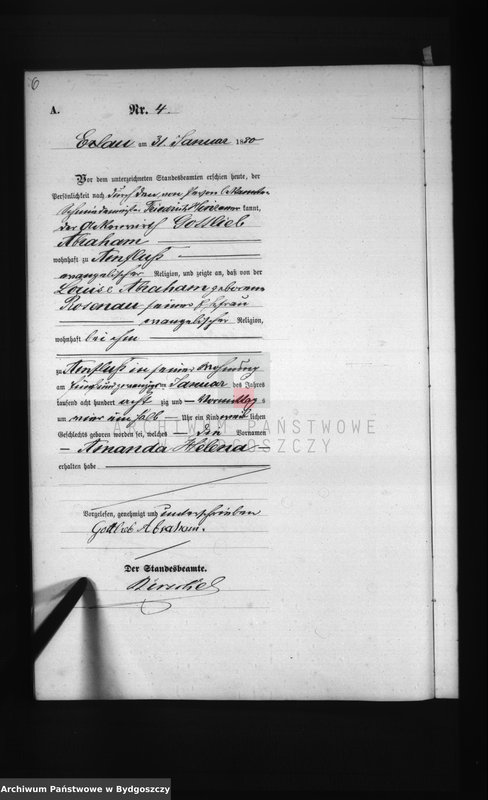 6
A. Nr. 4
Exlau am 31. Januar 1880
Vor dem unterzeichneten Standesbeamten erschien heute, der
Persönlichkeit nach durch den von Person bekannten
Friedrich kannt,
der Ackerwirth Gottlieb
Abraham
wohnhaft zu
evangelischer Religion, und zeigte an, daß von der
Louise Abraham geborenen
Rosenau seiner Ehefrau
evangelischer Religion,
wohnhaft bei ihm
zu in seiner Wohnung
am fünfundzwanzigsten Januar des Jahres
tausend acht hundert acht zig und Vormittag s
um vier ein halb Uhr ein Kind weiblichen
Geschlechts geboren worden sei, welches den Vornamen
Amanda Helena
erhalten habe
Vorgelesen, genehmigt und unterschrieben
Gottlieb Abraham.
Der Standesbeamte.
ARCHIWUM PAŃSTWOWE
W BYDGOSZCZY
Archiwum Państwowe w Bydgoszczy